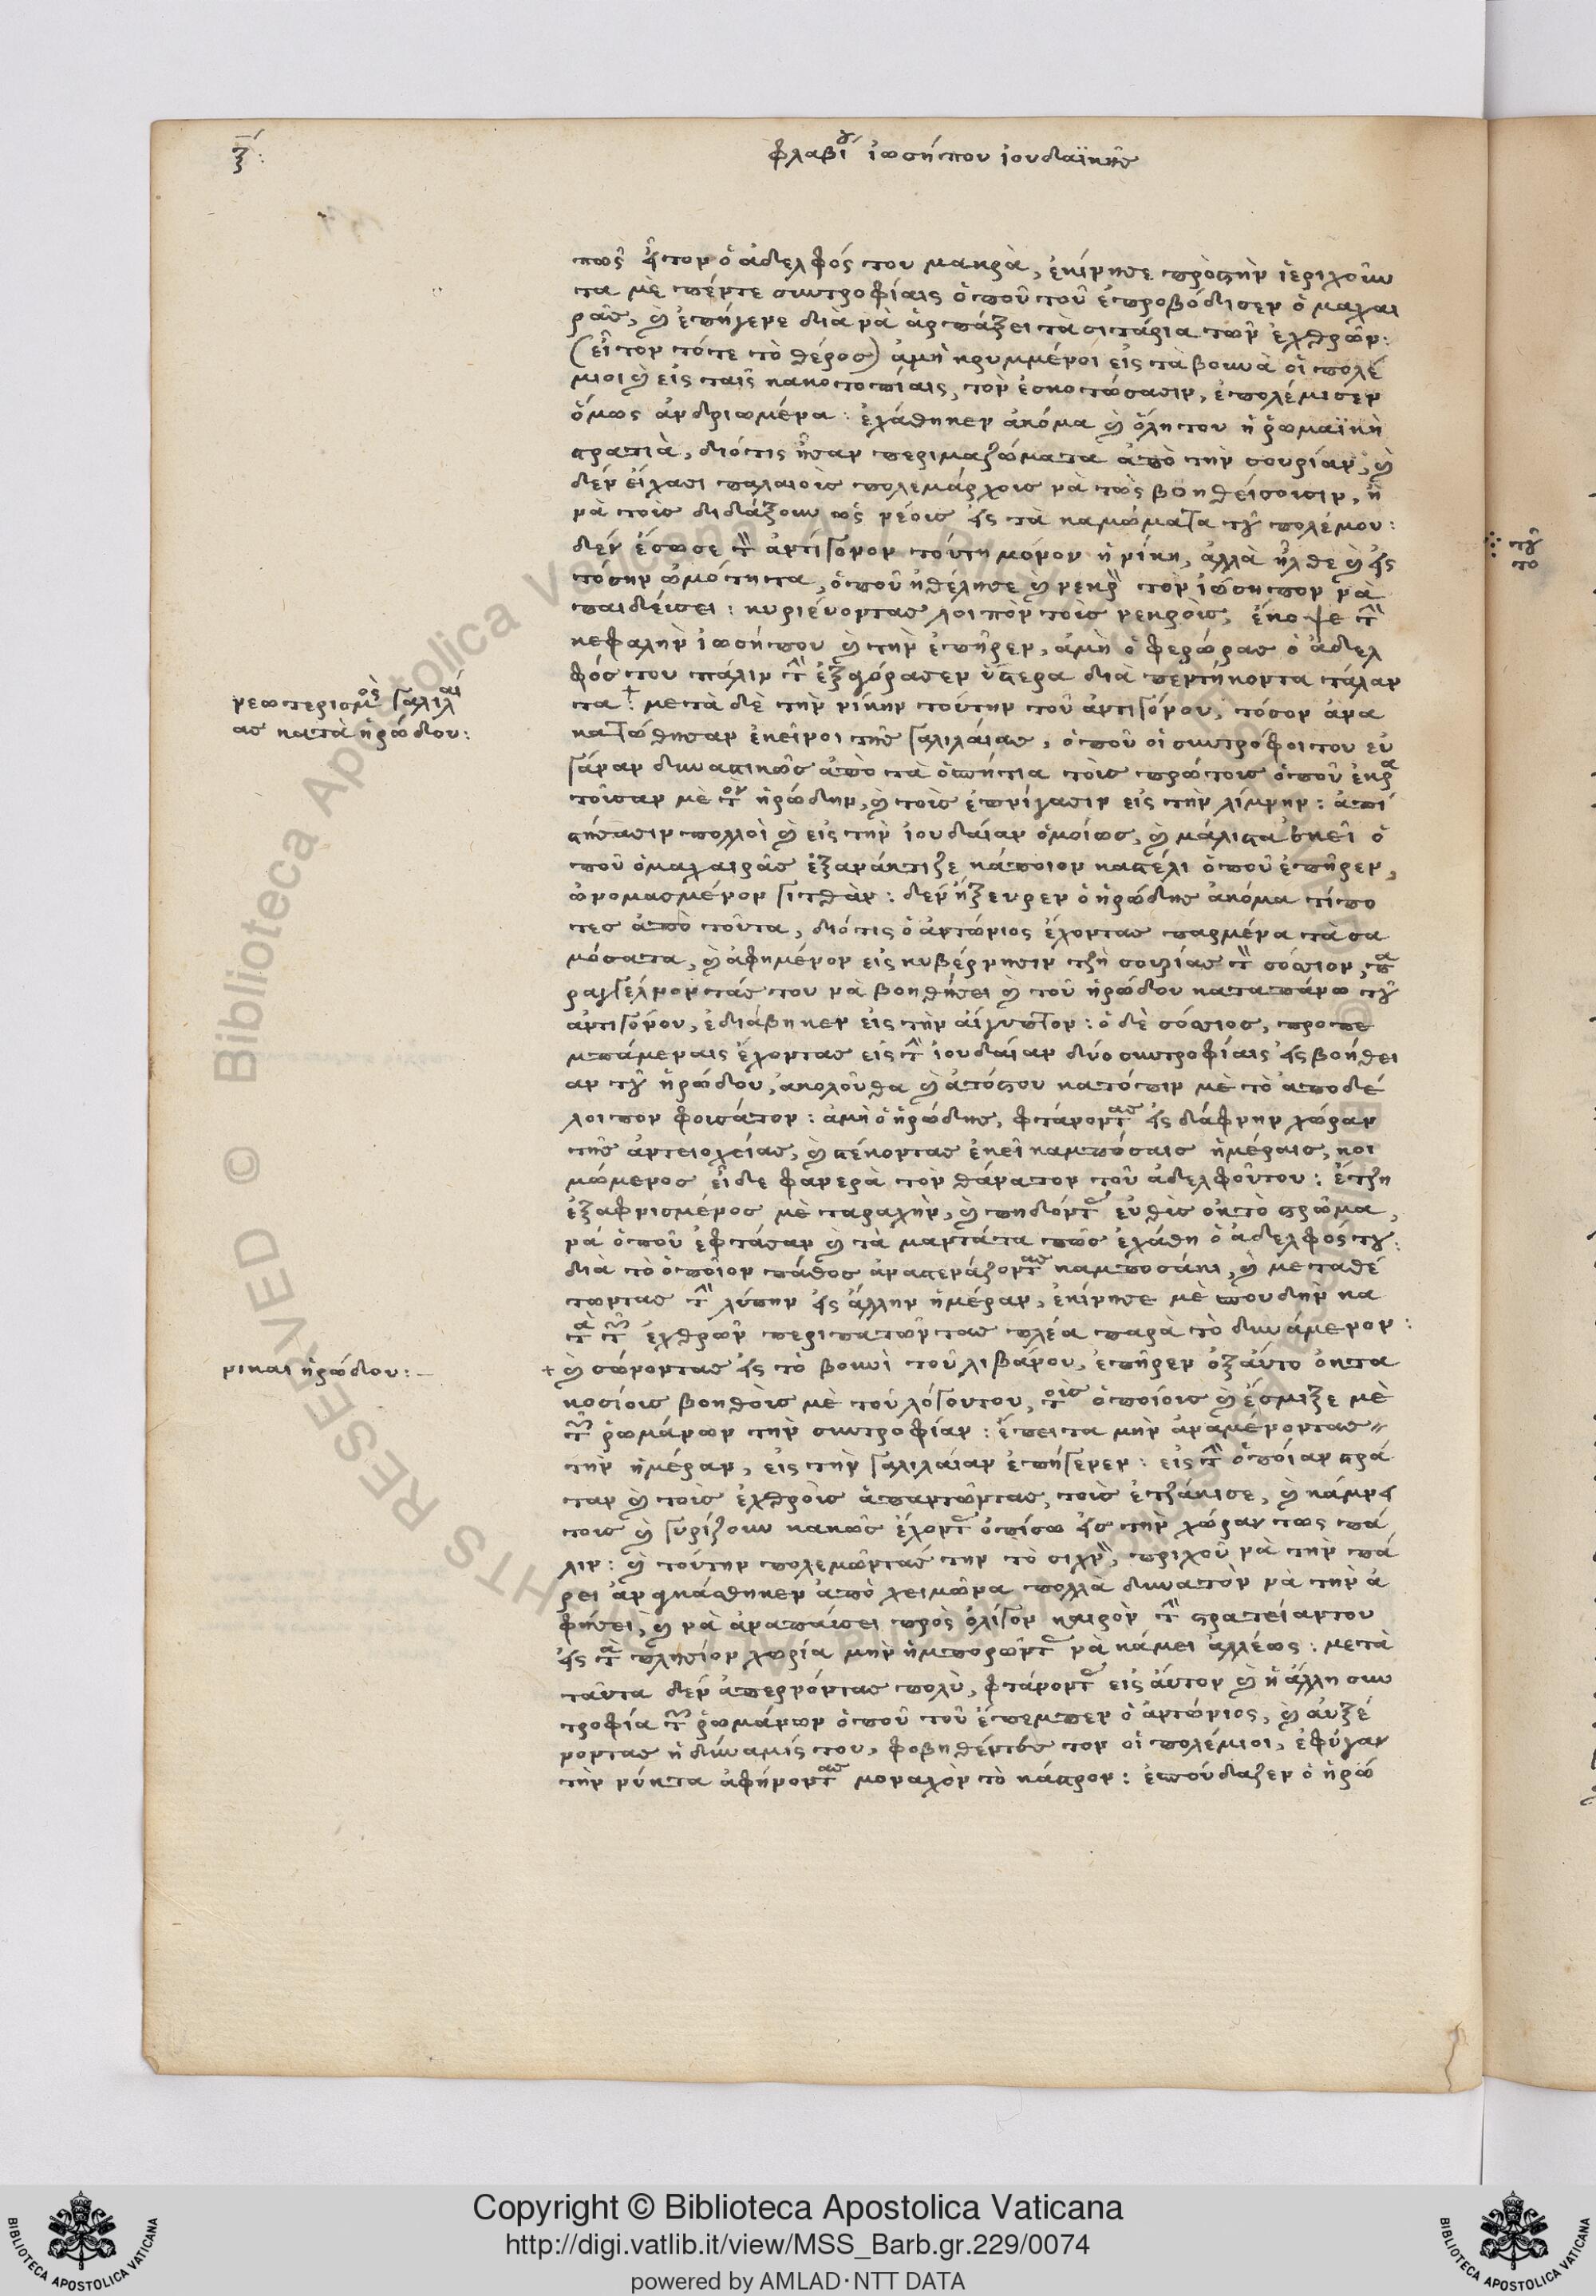 ξ´:
φλαβίου ἰωσήπου ἰουδαϊκῆς
πῶς ἦτον ὁ ἀδελφός του μακρὰ, ἐκίνησε πρὸς τὴν ἱεριχοῦν
τα μὲ πέντε συντροφίαις ὁποῦ τοῦ ἐπροβόδισεν ὁ μαχαι
ρᾶς, καὶ ἐπήγενε διὰ νὰ ἁρπάξει τὰ σιτάρια τῶν ἐχθρῶν:
(εἶτον τότε τὸ θέρος) ἀμὴ κρυμμένοι εἰς τὰ βουνὰ οἱ πολέ
μιοι καὶ εἰς ταῖς κακοτοπίαις, τὸν ἐσκοτώσασιν, ἐπολέμισεν
ὅμως ἀνδριωμένα: ἐχάθηκεν ἀκόμα καὶ ὅλη του ἡ ῥωμαϊκὴ
στρατιὰ, διότις ἦσαν περιμαζώματα ἀπὸ τὴν συρίαν, καὶ
δὲν εἴχασι παλαιοὺς πολεμάρχους νὰ τοὺς βοηθείσουσιν, ἢ
νὰ τοὺς διδάξουν ὡς νέους εἰς τὰ καμώματα τοῦ πολέμου:
δὲν ἔσωσε τὸν ἀντίγονον τούτη μόνον ἡ νίκη, ἀλλὰ ἦλθε καὶ εἰς
τόσην ὠμότητα, ὁποῦ ἠθέλησε καὶ νεκρὸν τὸν ἰώσηπον νὰ
παιδεύσει: κυριεύοντας λοιπὸν τοὺς νεκροὺς, ἔκοψε τὴν
κεφαλὴν ἰωσήπου καὶ τὴν ἐπῆρεν, ἀμὴ ὁ φερώρας ὁ ἀδελ
φός του πάλιν τὴν ἐξαγόρασεν ὕστερα διὰ πεντήκοντα τάλαν
τα: μετὰ δὲ τὴν νίκην τούτην τοῦ ἀντιγόνου, τόσον ἀνα
νεωτερισμὸς γαλιλαί
ας κατὰ ἡρώδου:
κατώθησαν ἐκεῖνοι τῆς γαλιλαίας, ὁποῦ οἱ συντρόφοι του εὐ
γάναν δυναστικῶς ἀπὸ τὰ ὁσπήτια τοὺς πρώτους ὁποῦ ἐκρα
τοῦσαν μὲ τὸν ἡρώδην, καὶ τοὺς ἐπνίγασιν εἰς τὴν λίμνην: ἀπί
στησασιν πολλοὶ καὶ εἰς τὴν ἰουδαίαν ὁμοίως, καὶ μάλιστα ἐκεῖ ὁ
ποῦ ὁ μαχαιρᾶς ἐξανάκτιζε κάποιον καστέλι ὁποῦ ἐπῆρεν,
ὠνομασμένον γιτθὰν: δὲν ἤξευρεν ὁ ἡρώδης ἀκόμα τίπο
τες ἀπὸ τοῦτα, διότις ὁ ἀντώνιος ἔχοντας παρμένα τὰ σα
μόσατα, καὶ ἀφημένον εἰς κυβέρνησιν τῆς συρίας τὸν σόσιον, πα
ραγγέλνοντάς του νὰ βοηθήσει καὶ τοῦ ἡρώδου καταπάνω τοῦ
ἀντιγόνου, ἐδιάβηκεν εἰς τὴν αἴγυπτον: ὁ δὲ σόσιος, προπε
μπάμεναις ἔχοντας εἰς τὴν ἰουδαίαν δύο συντροφίαις εἰς βοήθει
αν τοῦ ἡρώδου, ἀκολούθα καὶ ἀτός του κατόπιν μὲ τὸ ἀποδέ
λοιπον φουσάτον: ἀμὴ ὁ ἡρώδης, φτάνοντας εἰς δάφνην χώραν
τῆς ἀντειοχείας, καὶ στέκοντας ἐκεῖ καμπόσαις ἡμέραις, κοι
μώμενος εἶδε φανερὰ τὸν θάνατον τοῦ ἀδελφοῦ του: ἔτζη
ἐξαφνισμένος μὲ ταραχὴν, καὶ πηδόντας εὐθὺς ὀκ τὸ στρῶμα,
νά ὁποῦ ἐφτάσαν καὶ τὰ μαντάτα πῶς ἐχάθη ὁ ἀδελφός του:
διὰ τὸ ὁποῖον πάθος ἀναστενάζοντας καμποσάκι, καὶ μεταθέ
τωντας τὴν λύπην εἰς ἄλλην ἡμέραν, ἐκίνησε μὲ σπουδὴν κα
τὰ τῶν ἐχθρῶν περιπατῶντας πλέα παρὰ τὸ δυνάμενον:
νίκαι ἡρώδου:
+ καὶ σώνοντας εἰς τὸ βουνὶ τοῦ λιβάνου, ἐπῆρεν ὀξ αὐτο ὀκτα
κοσίους βοηθοὺς μὲ τοῦ λόγου του, τοὺς ὁποίους καὶ ἔσμιξε μὲ
τῶν ῥωμάνων τὴν συντροφίαν: ἔπειτα μὴν ἀναμένοντας
τὴν ἡμέραν, εἰς τὴν γαλιλαίαν ἐπήγενεν: εἰς τὴν ὁποίαν στρά
ταν καὶ τοὺς ἐχθροὺς ἀπαντῶντας, τοὺς ἐτζάκισε, καὶ κάμνει
τους καὶ γυρίζουν κακῶς ἔχοντας ὀπίσω εἰς τὴν χώραν τως πά
λιν: καὶ τούτην πολεμῶντάς την τὸ συχνὸν, πριχοῦ νὰ τὴν πά
ρει ἀναγκάσθηκεν ἀπὸ χειμῶνα πολλὰ δυνατὸν νὰ τὴν ἀ
φήσει, καὶ νὰ ἀναπαύσει πρὸς ὀλίγον καιρὸν τὴν στρατείαν του
εἰς τὰ πλησίον χωρία μὴν ἠμπορῶντας νὰ κάμει ἀλλέως: μετὰ
ταῦτα δὲν ἀπερνόντας πολὺ, φτάνοντας εἰς αὐτον καὶ ἡ ἄλλη συν
τροφία τῶν ῥωμάνων ὁποῦ τοῦ ἔπεμπεν ὁ ἀντώνιος, καὶ αὐξέ
νοντας ἡ δύναμίς του, φοβηθέντες τον οἱ πολέμιοι, ἐφύγαν
τὴν νύκτα ἀφήνοντας μοναχὸν τὸ κάστρον: ἐσπούδαζεν ὁ ἡρώ
τοῦ
το
Copyright © Biblioteca Apostolica Vaticana
http://digi.vatlib.it/view/MSS_Barb.gr.229/0074
powered by AMLAD·NTT DATA